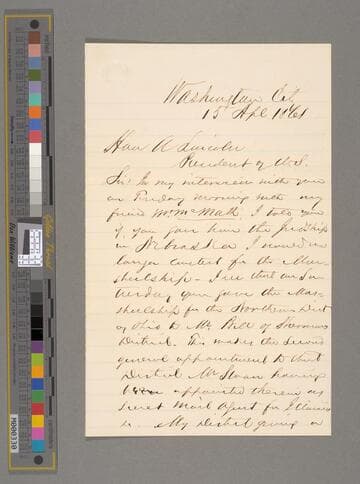 Washington City
15 Apl 1861
Hon A Lincoln
President of U.S.
Sir In my interview with you
on Friday morning with my
friend Mr. McMath. I told you
if you gave him the judship
in Nebraska I would no
longer contest for the Mar-
shallship - I see that on Sa-
turday you gave the Mar-
shallship for the Northern Dist
of Ohio to Mr. Bill of
District. This makes the second
general appointment to that
District Mr Sloan having
been appointed therein as
secret Mail Agent for Illinois
&c. My District giving a
M000330